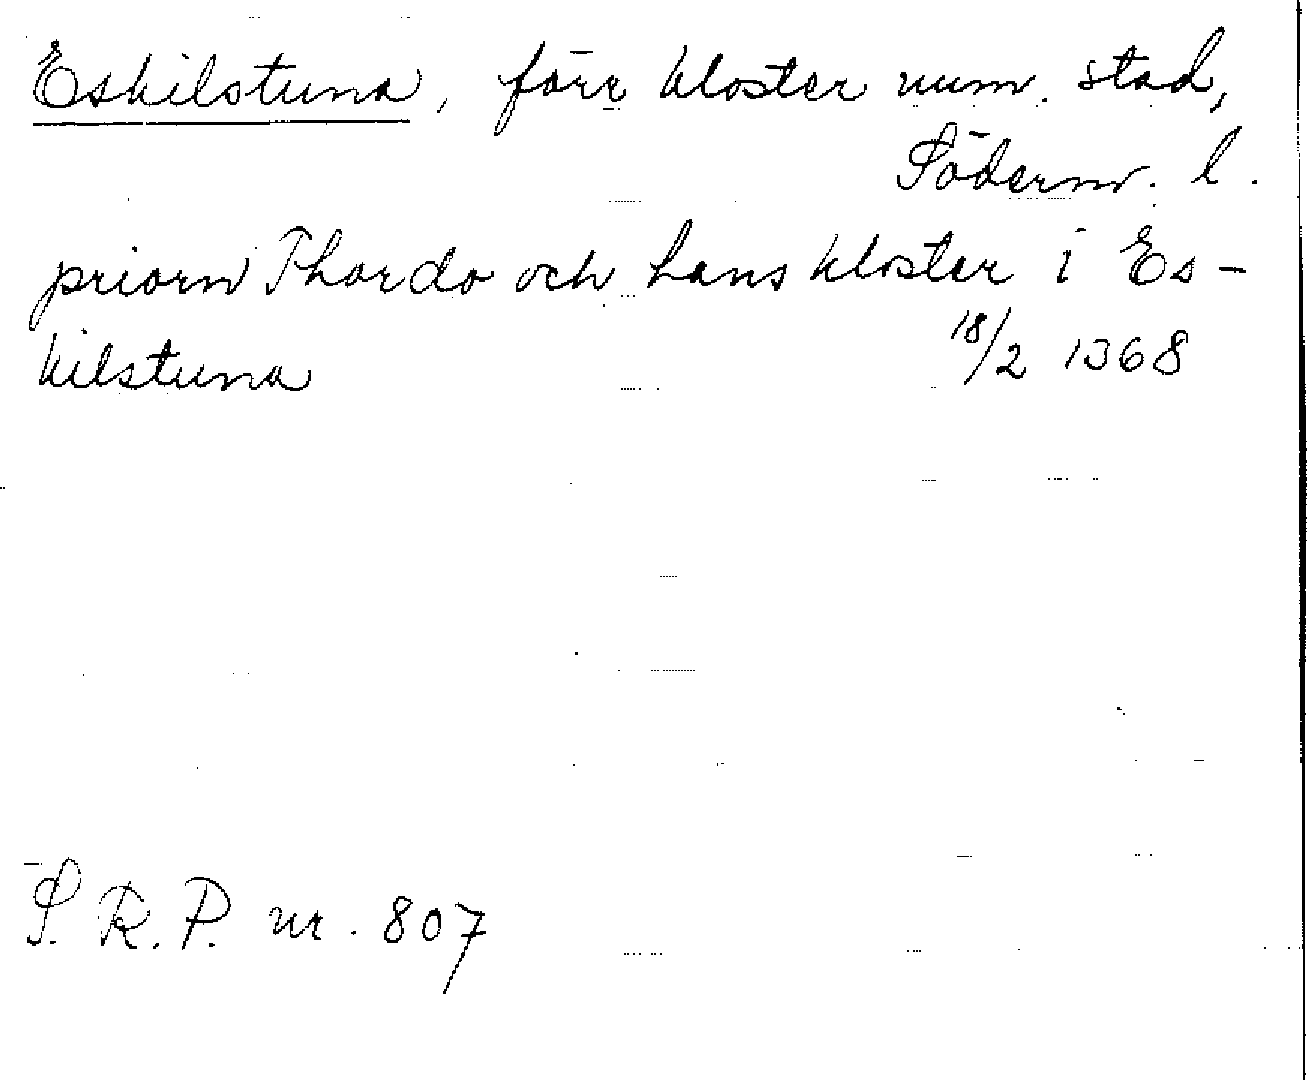 Eskilstuna, förr kloster num. stad,
Söderm. l.
priorn Thordo och hans kloster i Es-
kilstuna 18/2 1368
S. R. P. nr. 807